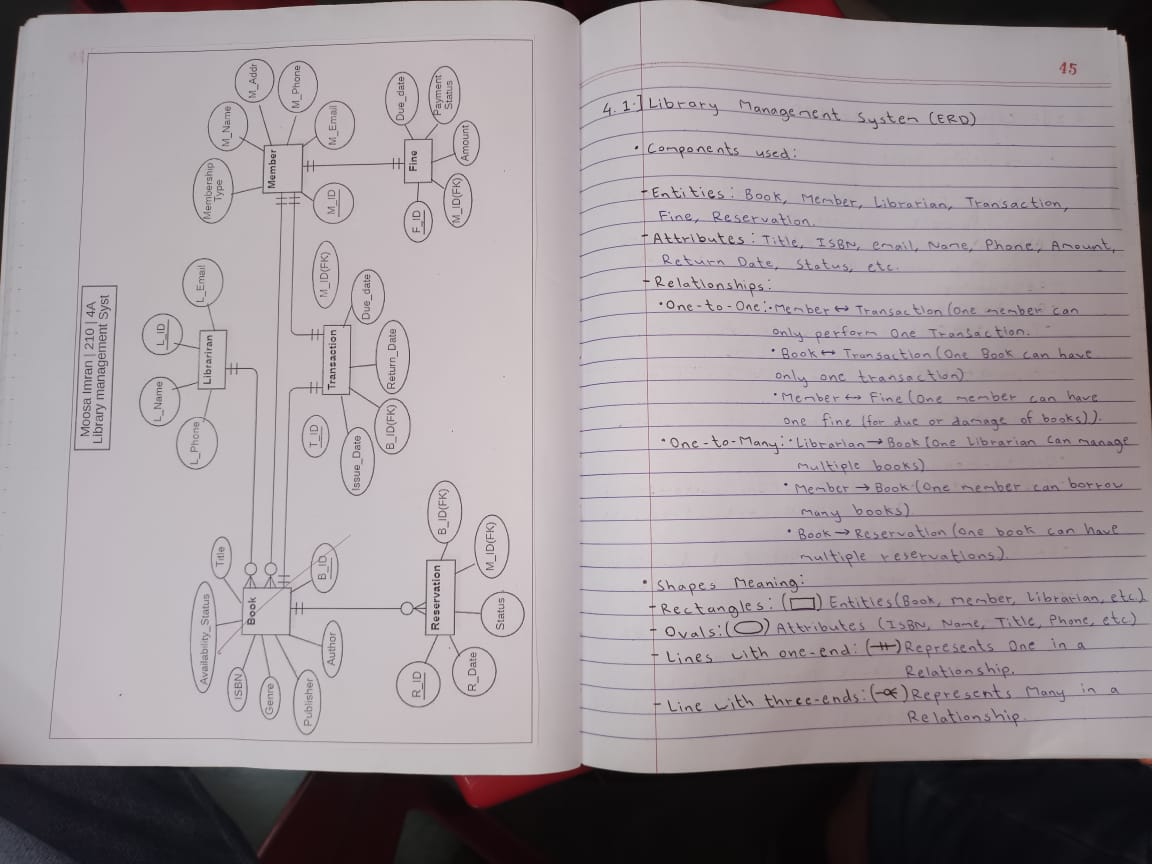 Moosa Imran | 210 | 4A
Library management Syst
L_Phone
L_Name
L_ID
L_Email
Librariran
Membership
Type
M_Name
M_Addr
M_Phone
M_Email
M_ID
Member
Due_date
Payment
Status
Amount
M_ID(FK)
F_ID
Fine
M_ID(FK)
Due_date
Return_Date
B_ID(FK)
Issue_Date
T_ID
Transaction
Title
Availability_Status
ISBN
Genre
Publisher
Author
B_ID
Book
B_ID(FK)
M_ID(FK)
Status
R_Date
R_ID
Reservation
45
4.1.] Library Management System (ERD)
• Components used:
- Entities: Book, Member, Librarian, Transaction,
Fine, Reservation.
- Attributes: Title, ISBN, email, Name, Phone, Amount,
Return Date, Status, etc.
- Relationships:
• One-to-One: • Member ↔ Transaction (one member can
only perform One Transaction.
• Book ↔ Transaction (One Book can have
only one transaction)
• Member ↔ Fine (One member can have
one fine (for due or damage of books)).
• One-to-Many: • Librarian → Book (one Librarian can manage
multiple books)
• Member → Book (One member can borrow
many books)
• Book → Reservation (one book can have
multiple reservations)
• Shapes Meaning:
- Rectangles: ( ) Entities (Book, Member, Librarian, etc)
- Ovals: ( ) Attributes (ISBN, Name, Title, Phone, etc)
- Lines with one-end: ( ) Represents One in a
Relationship.
- Line with three-ends: ( ) Represents Many in a
Relationship.